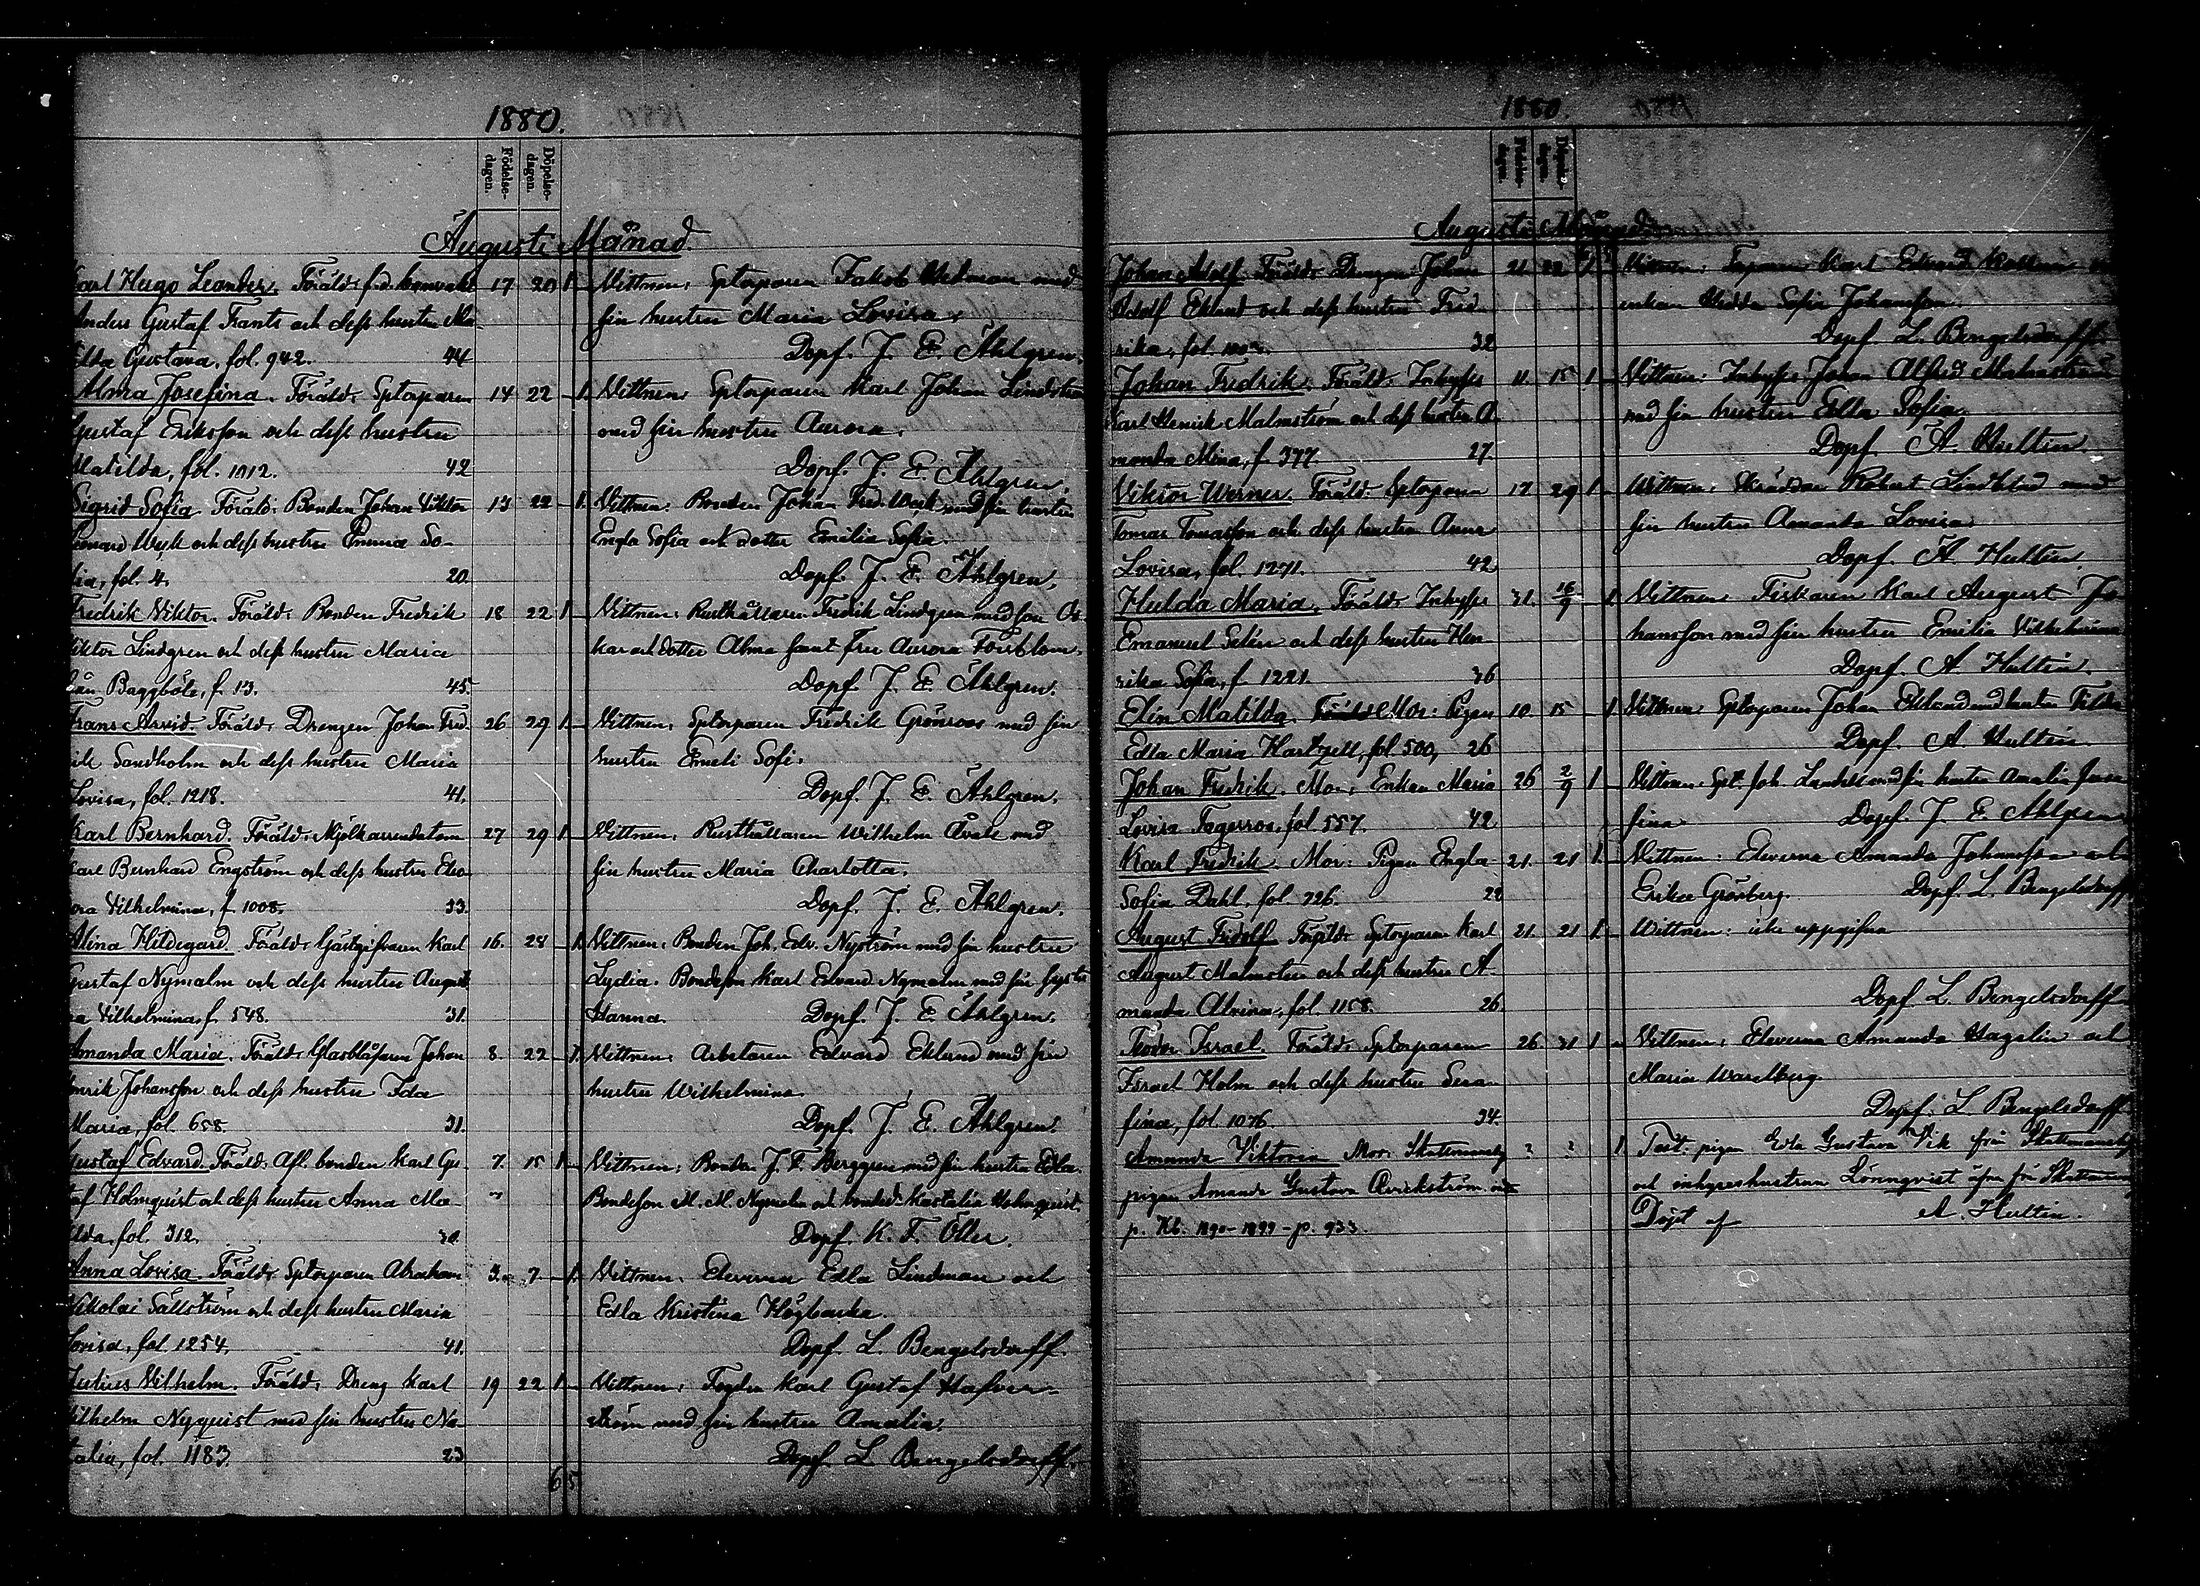 1880.
Födelse-
dagen.
Döpelse-
dagen.
Augusti Månad.
Karl Hugo Leander. Föräld: f.d. 17 20 1 Vittnen: Sptorparen Jakob Hedman med
Anders Gustaf Frants och dess hustru Ma- sin hustru Maria Lovisa.
tilda Gustava, fol. 942. 44 Döpt. J. E. Ahlgren.
Alma Josefina. Föräld: Sptorparen 14 22 1. Vittnen: Sptorparen Karl Johan Lindström
Gustaf Eriksson och dess hustru med sin hustru Aurora.
Matilda, fol. 1012. 42 Döpt. J. E. Ahlgren.
Sigrid Sofia. Föräld: Bonden Johan Viktor 13 22 1. Vittnen: Bonden Johan Fred. Weik med sin hustru
Leonard Wyk och dess hustru Emma So- Engla Sofia och dotter Emilia Sofia.
fia, fol. 4. 20. Döpt. J. E. Ahlgren.
Fredrik Viktor. Föräld: Bonden Fredrik 18 22 1 Vittnen: Rusthållaren Fredrik Lindgren med son Os-
Viktor Lindgren och dess hustru Maria kar och dotter Alma samt fru Aurora Forsblom.
från Baggböle, f. 13. 45. Döpt. J. E. Ahlgren.
Frans Arvid. Föräld: Drengen Johan Fred- 26 29 1 Vittnen: Sptorparen Fredrik Grönroos med sin
rik Sandholm och dess hustru Maria hustru Emeli Sofi.
Lovisa, fol. 1218. 41. Döpt. J. E. Ahlgren.
Karl Bernhard. Föräld: Mjölkarrendatorn 27 29 1. Vittnen: Rusthållaren Wilhelm med
Karl Bernhard Engström och dess hustru Eleo- sin hustru Maria Charlotta.
nora Vilhelmina, f. 1008. 33. Döpt. J. E. Ahlgren.
Alina Hildegard. Föräld: Gästgifvaren Karl 16. 28 1. Vittnen: Bonden Joh. Edv. Nyström med sin hustru
Gustaf Nymalm och dess hustru August- Lydia. Bondeson Karl Edvard Nymalm med sin syster
a Vilhelmina, f. 548. 31. Hanna. Döpt. J. E. Ahlgren.
Amanda Maria. Föräld: Glasblåsaren Johan 8. 22 1. Vittnen: Arbetaren Edvard Eklund med sin
Henrik Johansson och dess hustru Ida hustru Wilhelmina.
Maria, fol. 658. 31. Döpt. J. E. Ahlgren.
Gustaf Edvard. Föräld: Afl. bonden Karl Gu- 7. 15 1 Vittnen: Bonden J. F. Berggren med sin hustru Edla.
taf Holmquist och dess hustru Anna Ma- Bondeson M. M. Nymalm och Holmquist.
tilda, fol. 312. 30. Döpt. K. F. Öller.
Anna Lovisa. Föräld: Sptorparen Abraham 3. 7. 1. Vittnen: Eleverna Edla Lindman och
Nikolai Sällström och dess hustru Maria Edla Kristina Högbacka.
Lovisa, fol. 1254. 41. Döpt. L. Bengelsdorff.
Julius Vilhelm. Föräld: Dreng Karl 19 22 1 Vittnen: Fogden Karl Gustaf Hafver-
Vilhelm Nyquist med sin hustru Na- ström med sin hustru Amalia.
talia, fol. 1183. 23 Döpt. L. Bengelsdorff.
6 5
1880.
Födelse-
dagen.
Döpelse-
dagen.
Augusti Månad.
Johan Adolf. Föräld: Drengen Johan 21. 22 1 Vittnen: Karl Edvard
Adolf Eklund och dess hustru Fred- enkan Hedda Sofia Johansson.
rika, fol. 32 Döpt. L. Bengelsdorff.
Johan Fredrik. Föräld: Inhyses 11. 15 1 Vittnen: Inhyses Johan Alfred Malmström
Karl Henrik Malmström och dess hustru A- med sin hustru Edla Sofia.
manda Mina, f. 377. 27 Döpt. A. Hultin.
Viktor Werner. Föräld: Sptorparen 17 29 1 Vittnen: Skräddar Robert Lindblad med
Tomas Tomasson och dess hustru Anna sin hustru Amanda Lovisa.
Lovisa, fol. 1271. 42 Döpt. A. Hultin.
Hulda Maria. Föräld: Inhyses 31. 16/9 1. Vittnen: Fiskaren Karl August Jo-
Emanuel Selin och dess hustru Hen- hansson med sin hustru Emilia Vilhelmina
rika Sofia, f. 1221. 36 Döpt. A. Hultin.
Elin Matilda. Föräld: Mor: Pigan 10. 15 1 Vittnen: Sptorparen Johan Eklund med hustru Tilda
Edla Maria Hartzell, fol. 500, 26 Döpt. A. Hultin.
Johan Fredrik. Mor: Enkan Maria 26 2/9 1 Vittnen: Spt. Joh. med sin hustru Amalia Jose-
Lovisa Fagerroos, fol. 557. 42 fina Döpt. J. E. Ahlgren
Karl Fredrik. Mor: Pigan Engla 21. 21 1. Vittnen: Eleverna Amanda Johansson och
Sofia Dahl, fol. 726. 22 Erika Grönberg. Döpt. L. Bengelsdorff
August Fridolf. Föräld: Sptorparen Karl 21 21 1. Wittnen: icke uppgifna
August Malmsten och dess hustru A-
manda Alvina, fol. 1158. 26. Döpt L. Bengelsdorff
Teodor Israel. Föräld: Sptorparen 26. 31 1 Vittnen: Eleverna Amanda Hagelin och
Israel Holm och dess hustru Sera- Maria Warelberg.
fina, fol. 1076. 34. Döpt. L. Bengelsdorff
Amanda Viktoria Mor: Skattmansby ? ? 1. Test: pigan Eda Gustava Vik från Skattmansby
pigan Amanda Gustava Qvickström och inhyseshustrun Lönnqvist äfven från
p. Kb. 1890-1899 - p. 933. Döpt af A. Hultin.